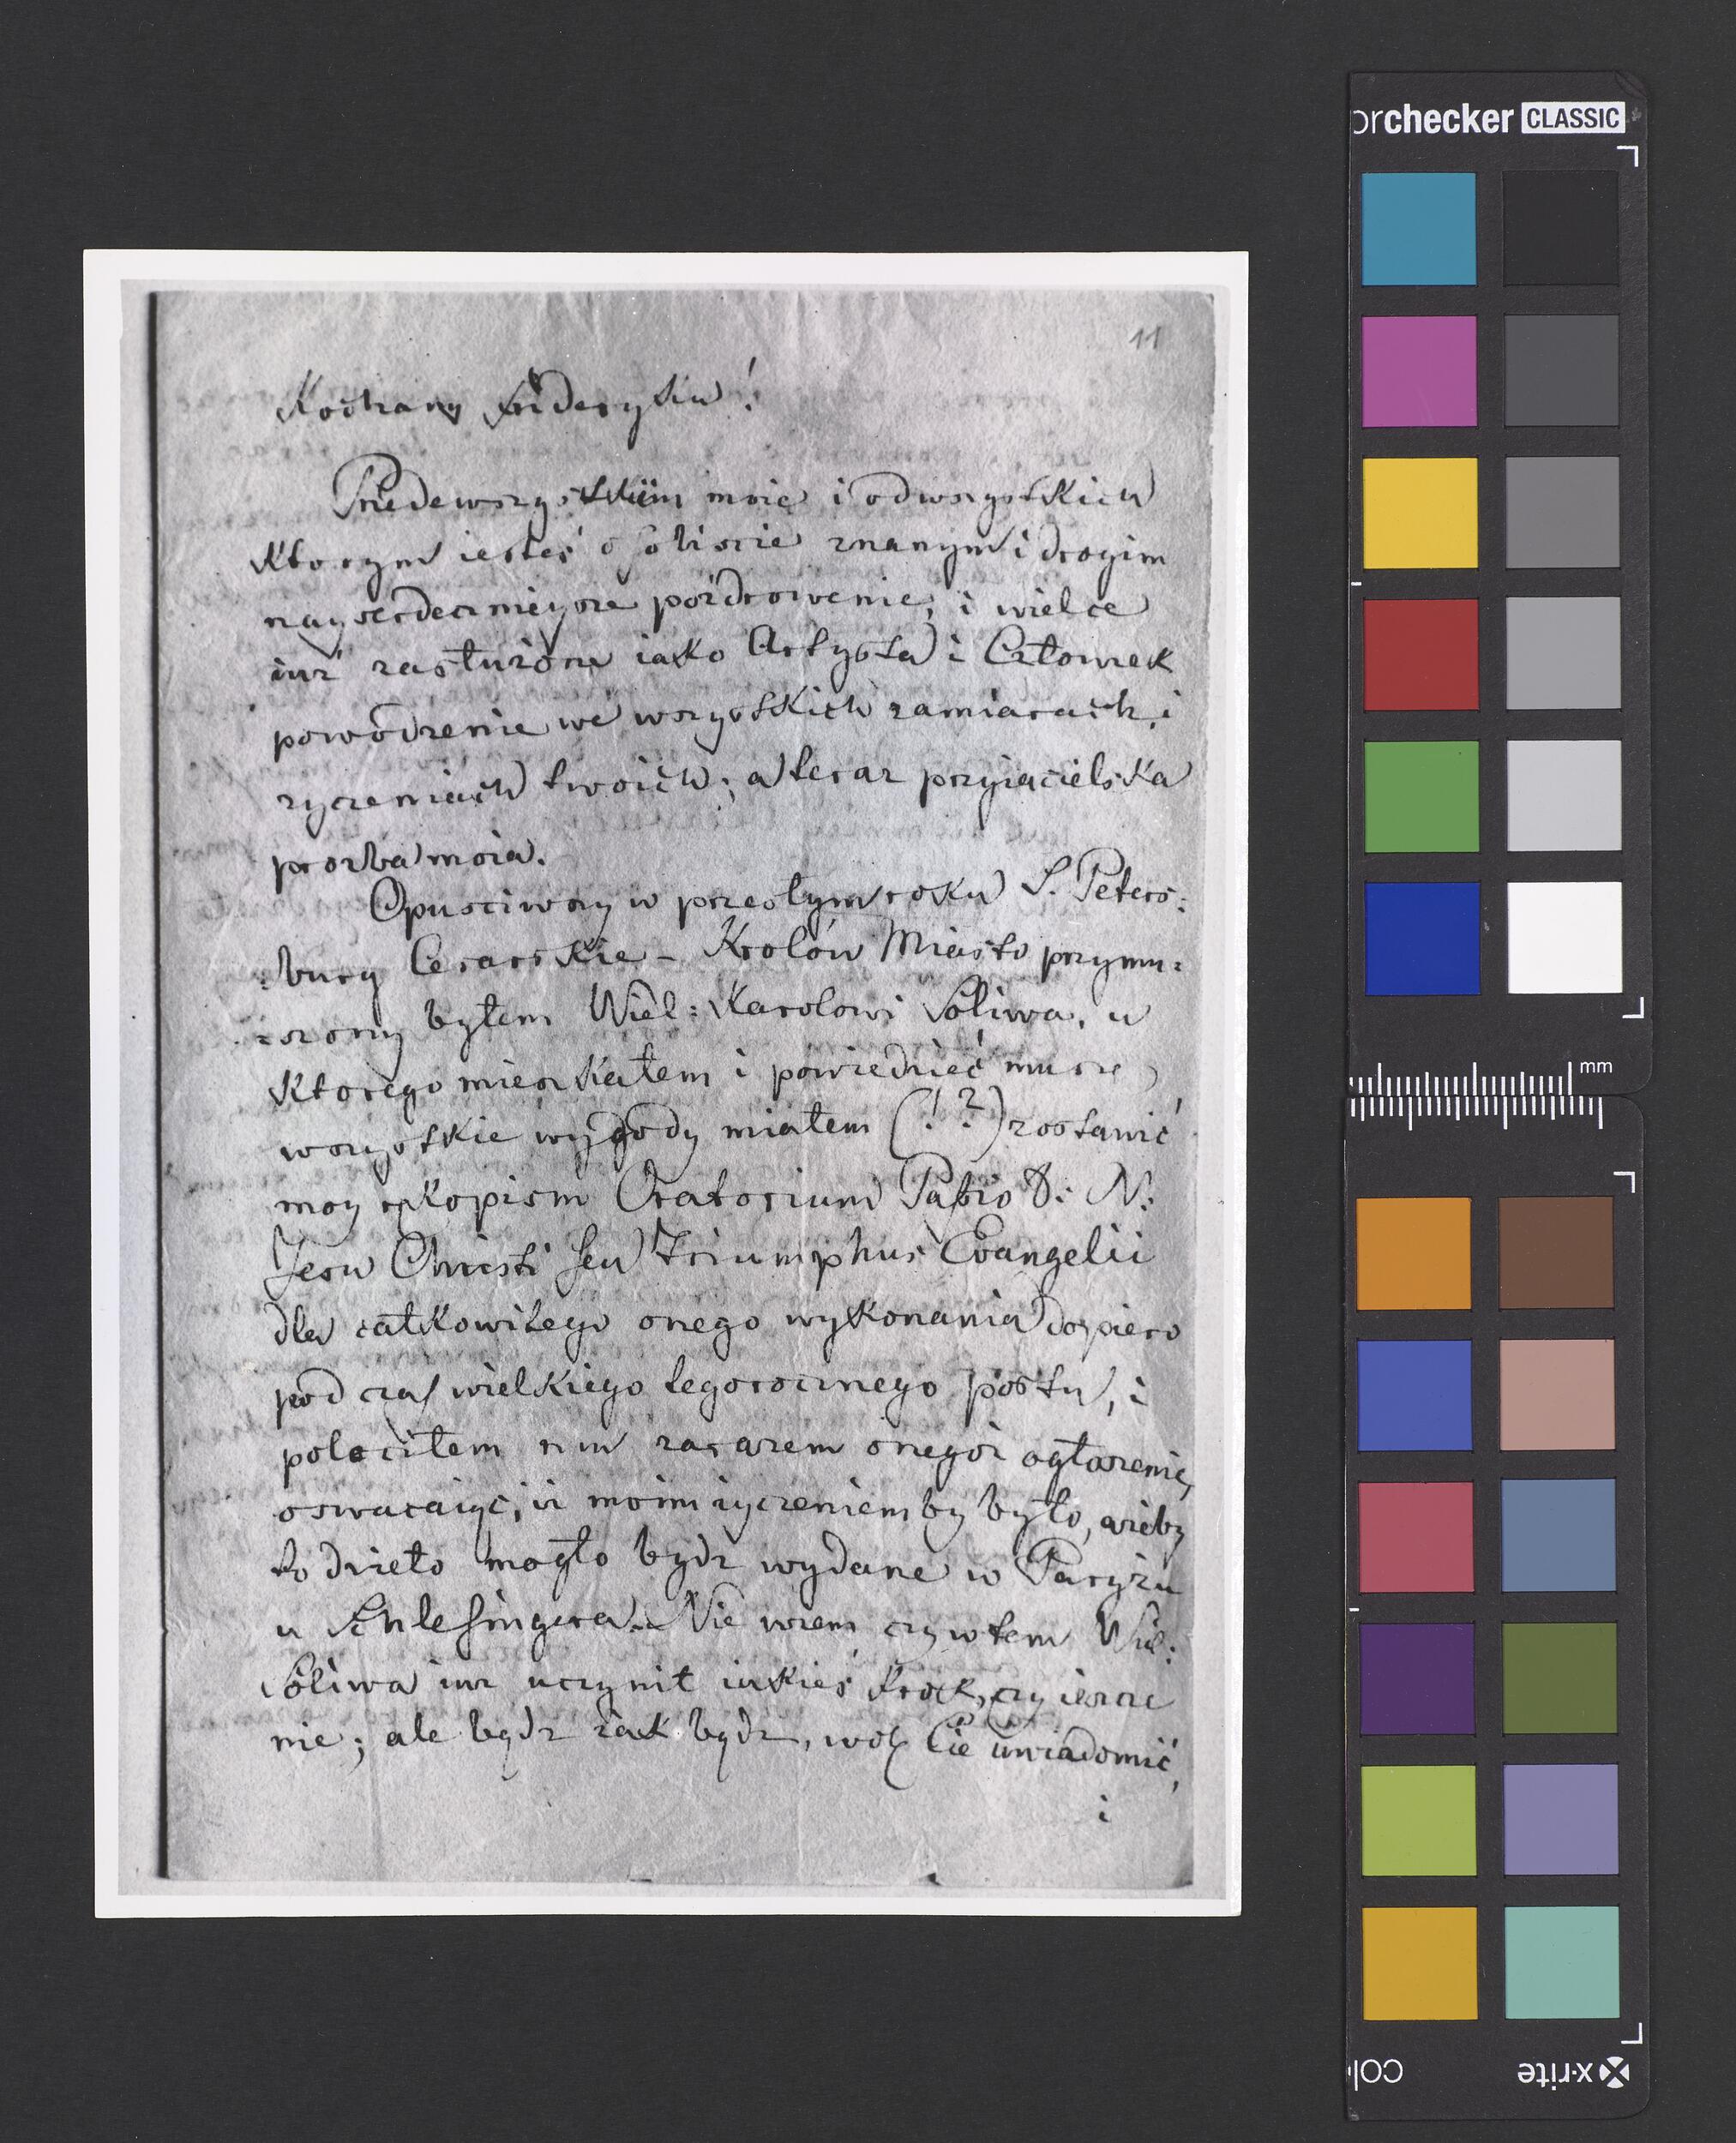 11
Kochany Frideryku!
Przedewszystkiem moie i od wszystkich
ktorym iesteś osobiscie znanym i drogim
nayserdecznieysze pozdrowienie, i wielce
iuz zasłużone iako Artysta i Człowiek
powodzenie we wszystkich zamiarach i
zyczeniach twoich; a teraz przyiacielska
prozba moia.
Opusciwszy w przeszłym roku S. Peters:
:burg Cesarskie - Krolów Miasto przymu=
=szony byłem Wiel: Karolowi Soliwa, u
ktorego mieszkałem i powiedzieć musze
wszystkie wygody miałem (!?) zostawić
moy rękopism Oratorium Passio D: N:
Jesu Christi seu Triumphus Evangelii
dla całkowitego onego wykonania dopiero
pod czas wielkiego tegorocznego postu, i
poleciłem mu zarazem onegoż ogłoszenie,
oswiadczaiąc, iż moim zyczeniem by było, azieby
to dzieło mogło bydz wydane w Paryzu
u Schlesingera. Nie wiem czy w tem Wiel:
Soliwa iuz uczynił iakieś krok, czy ieszcze
nie; ale bądz iak bądz, wolę Cie uwiadomić,
i
orchecker CLASSIC
mm
x-rite
col